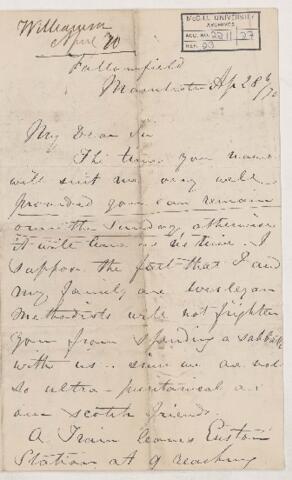 Williamson
April 70
McGILL UNIVERSITY
ARCHIVES
ACC. NO. 2211/27
REF. 23
Fallowfield
Manchester Ap 28th/70
My Dear Sir
The time you name
will suit me very well
provided you can remain
over the Sunday, otherwise
it will leave us no time. I
suppose the fact that I and
my family are Wesleyan
Methodists will not frighten
you from spending a sabbath
with us - since we are not
so ultra-puritanical as
our scotch friends.
A Train leaves Euston
Station at 9 reaching